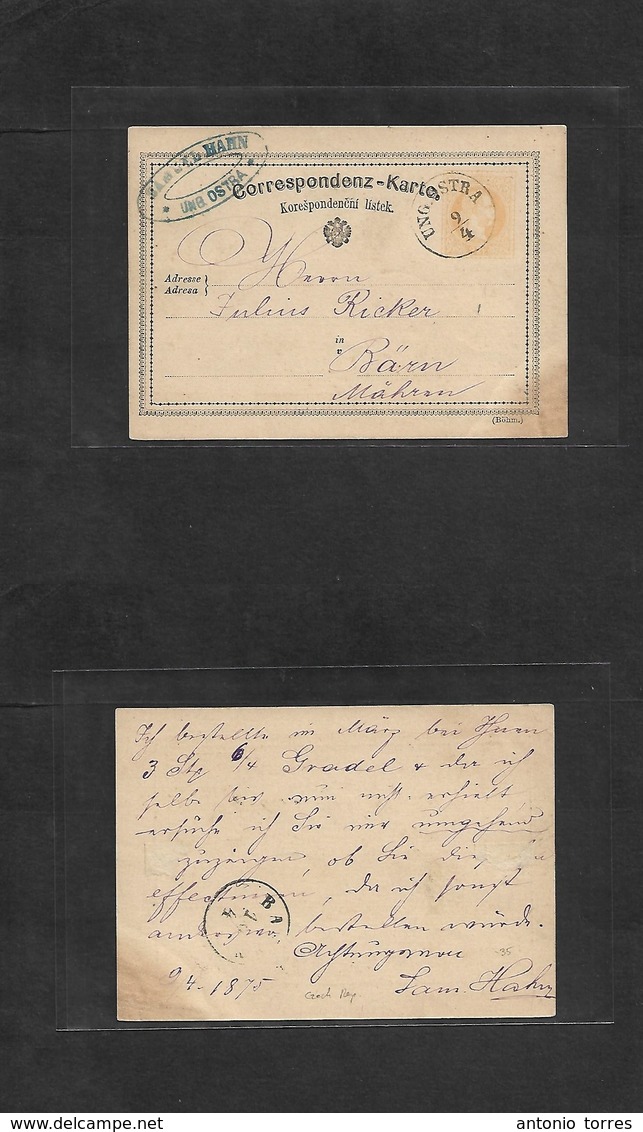 SAMUEL HAHN
UNG. OSTRA
Correspondenz-Karte.
Korešpondenční lístek.
UNG. OSTRA
9/4
Adresse
Adresa
Herrn
Julius Ricker
in
v
Bärn
Mähren
(Böhm.)
Ich bestellte im März bei Ihnen
3 Stg 6/4 Gradel & da ich
selbe bis nun nicht erhielt
ersuche ich Sie mir umgehend
zuzeigen, ob Sie die
effectuiren, da ich sonst
bestellen würde.
BA
Achtungsvoll
35
9/4 - 1875
Czech Rep.
Sam. Hahn
www.delcampe.net
antonio torres